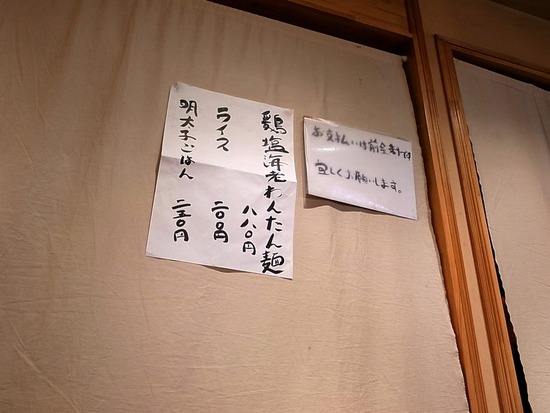 鶏塩海老わんたん麺
八八〇円
ライス
一〇〇円
明太子ごはん
二五〇円
お支払いは前会計です
宜しくお願いします。